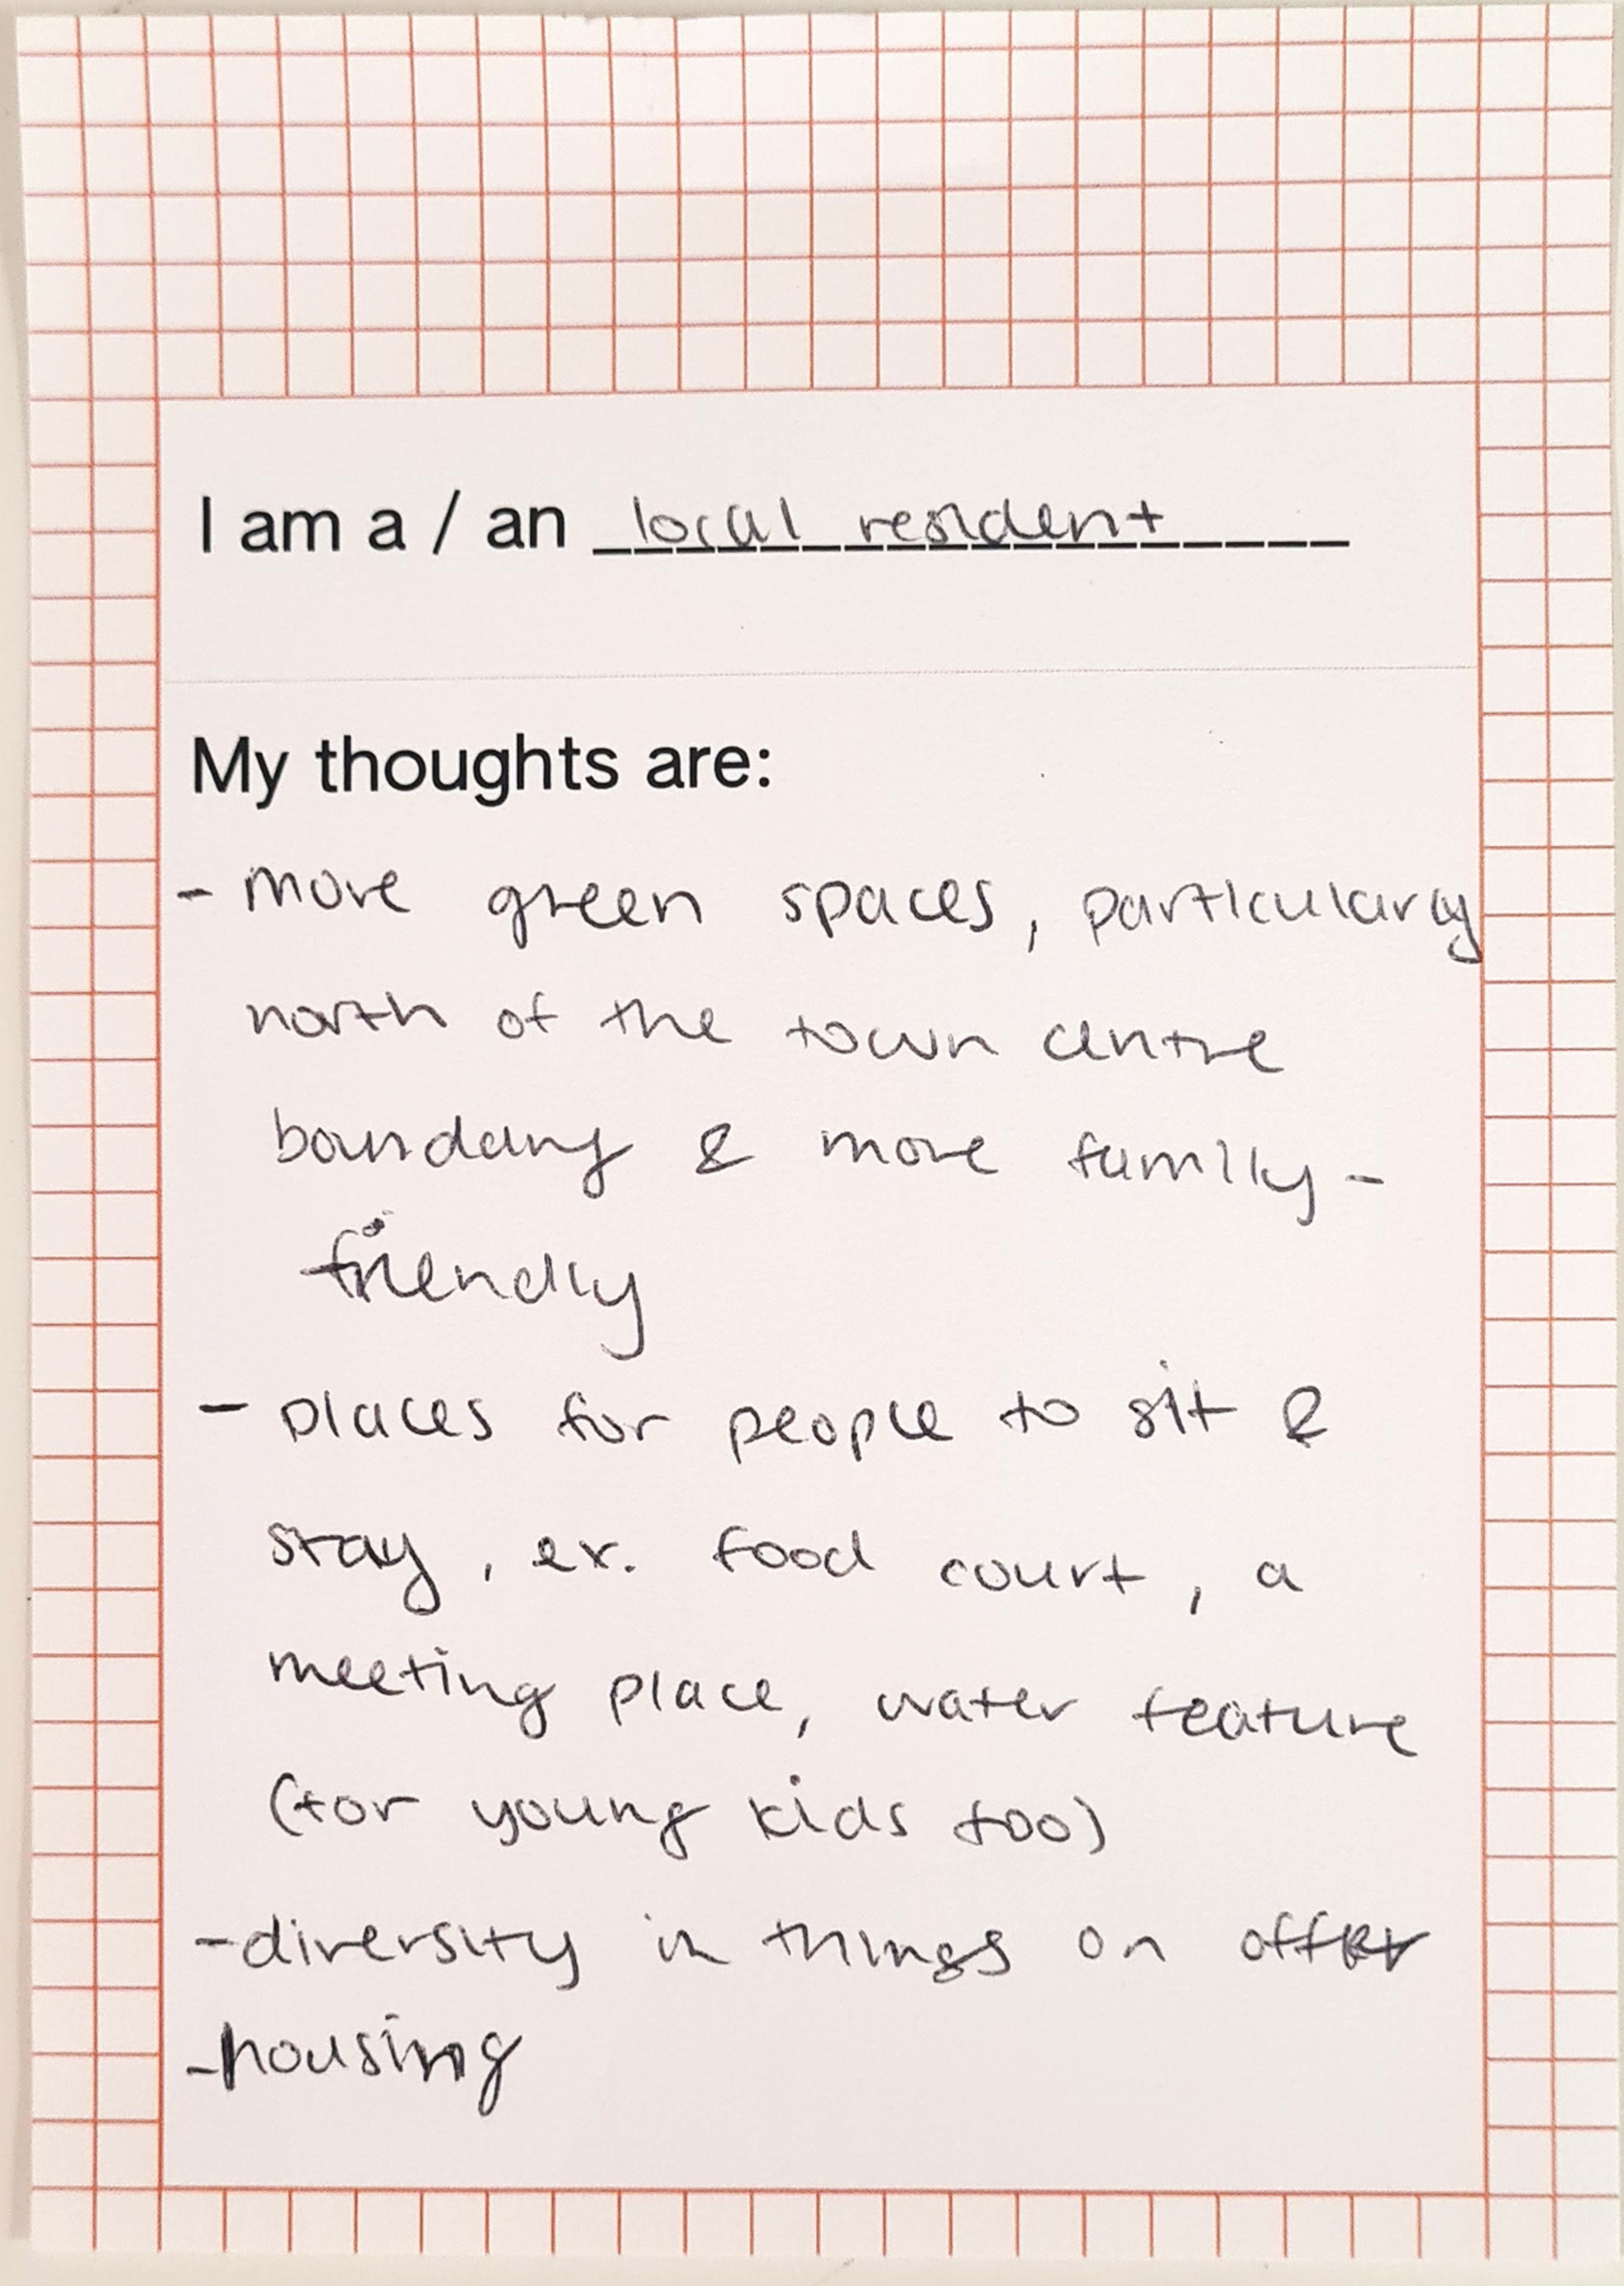 I am a / an local resident
My thoughts are:
- more green spaces, particularly
north of the town centre
boundary & more family-
friendly
- places for people to sit &
stay, ex. food court, a
meeting place, water feature
(for young kids too)
- diversity in things on offer
- housing